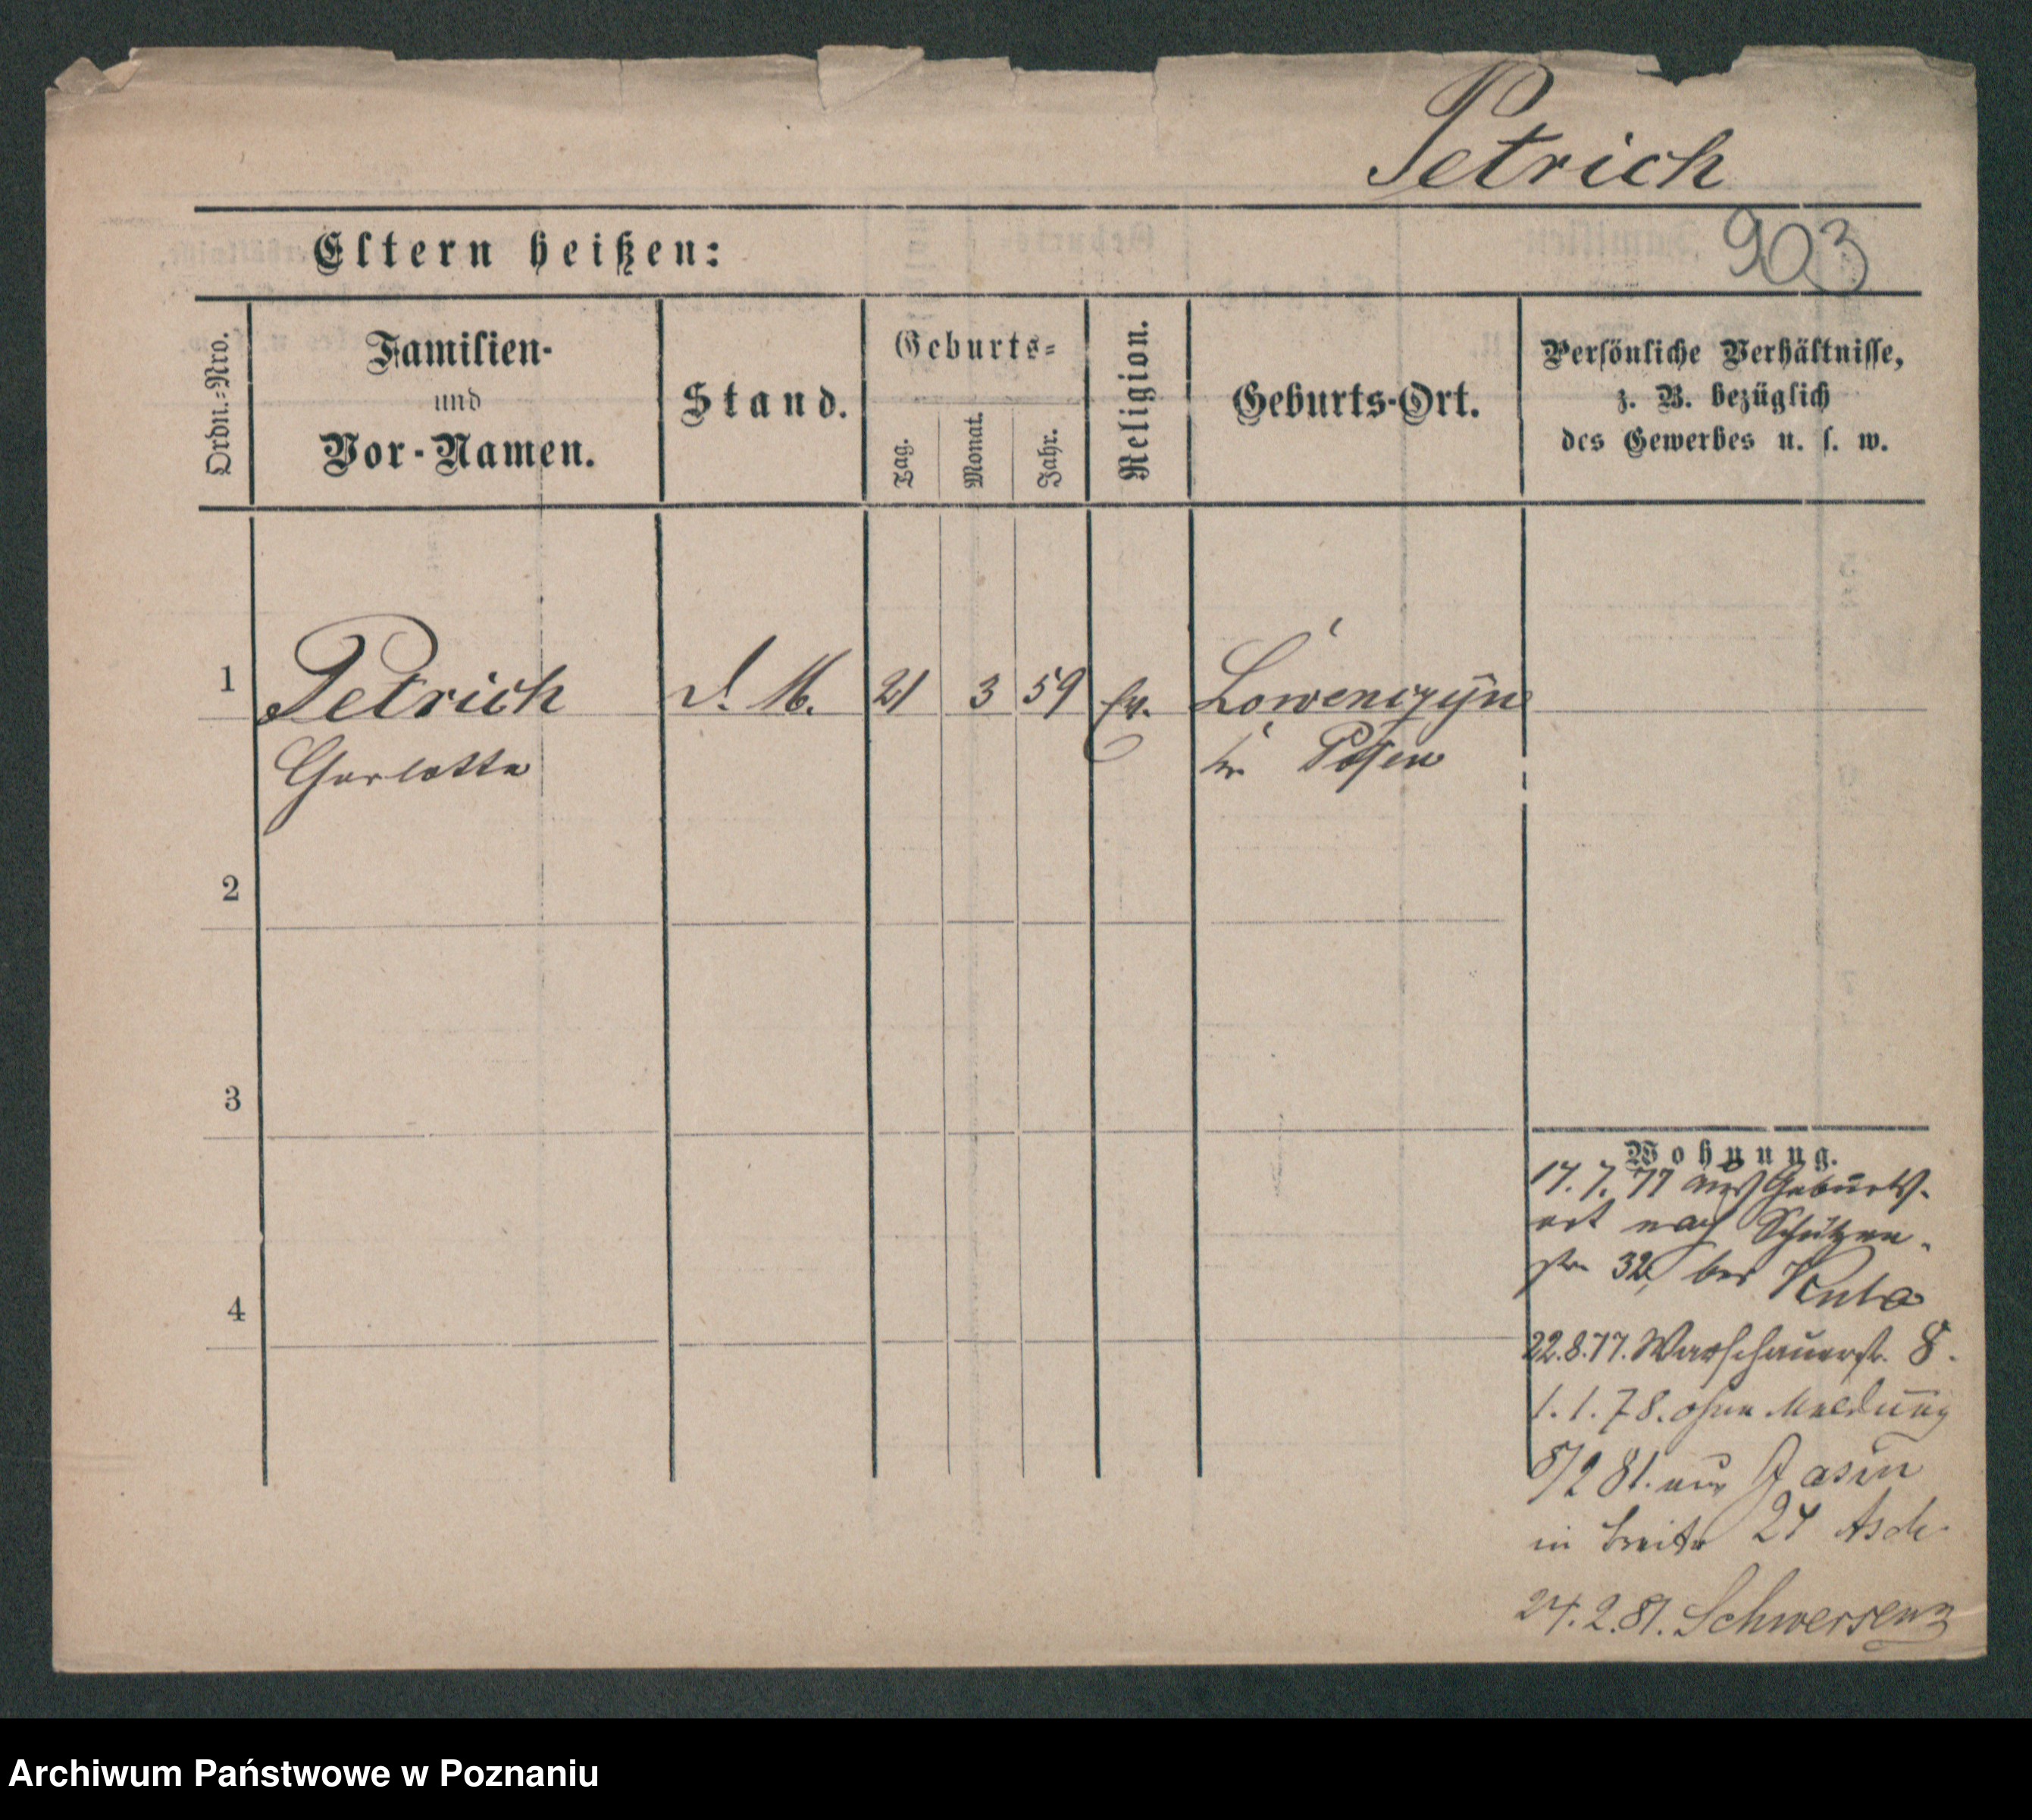 Petrich
903
Eltern heißen:
Ordn.-Nro.
Familien-
und
Vor-Namen.
Stand.
Geburts-
Tag.
Monat.
Jahr.
Religion.
Geburts-Ort.
Persönliche Verhältnisse,
z. B. bezüglich
des Gewerbes u. s. w.
1
Petrich
Charlotte
d. M.
21
3
59
Ev.
Lowenczyn
Kr. Posen
2
3
4
Wohnung.
17. 7. 77 aus Geburts-
ort nach Schützen-
str 32, bei
22.8.77. Warschauerstr. 8.
1.1.78. ohne Meldung
8/2 81. aus Jasin
in Breite 24 Asch
24.2.81. Schwersenz
Archiwum Państwowe w Poznaniu